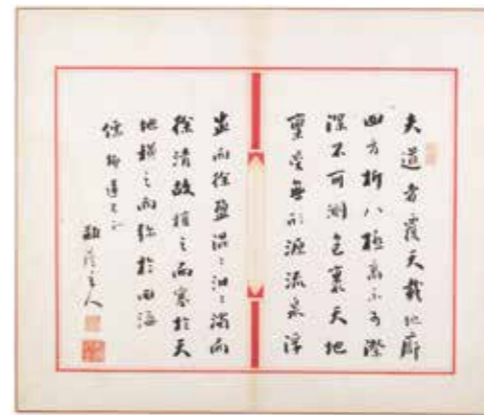 夫道者覆天載地廓
四方柝八極高不可際
深不可測包裹天地
稟受無形源流泉浡
盅而徐盈混〻汩〻濁而
徐清故植之而塞於天
地橫之而彌於四海
儒卿道兄
主人